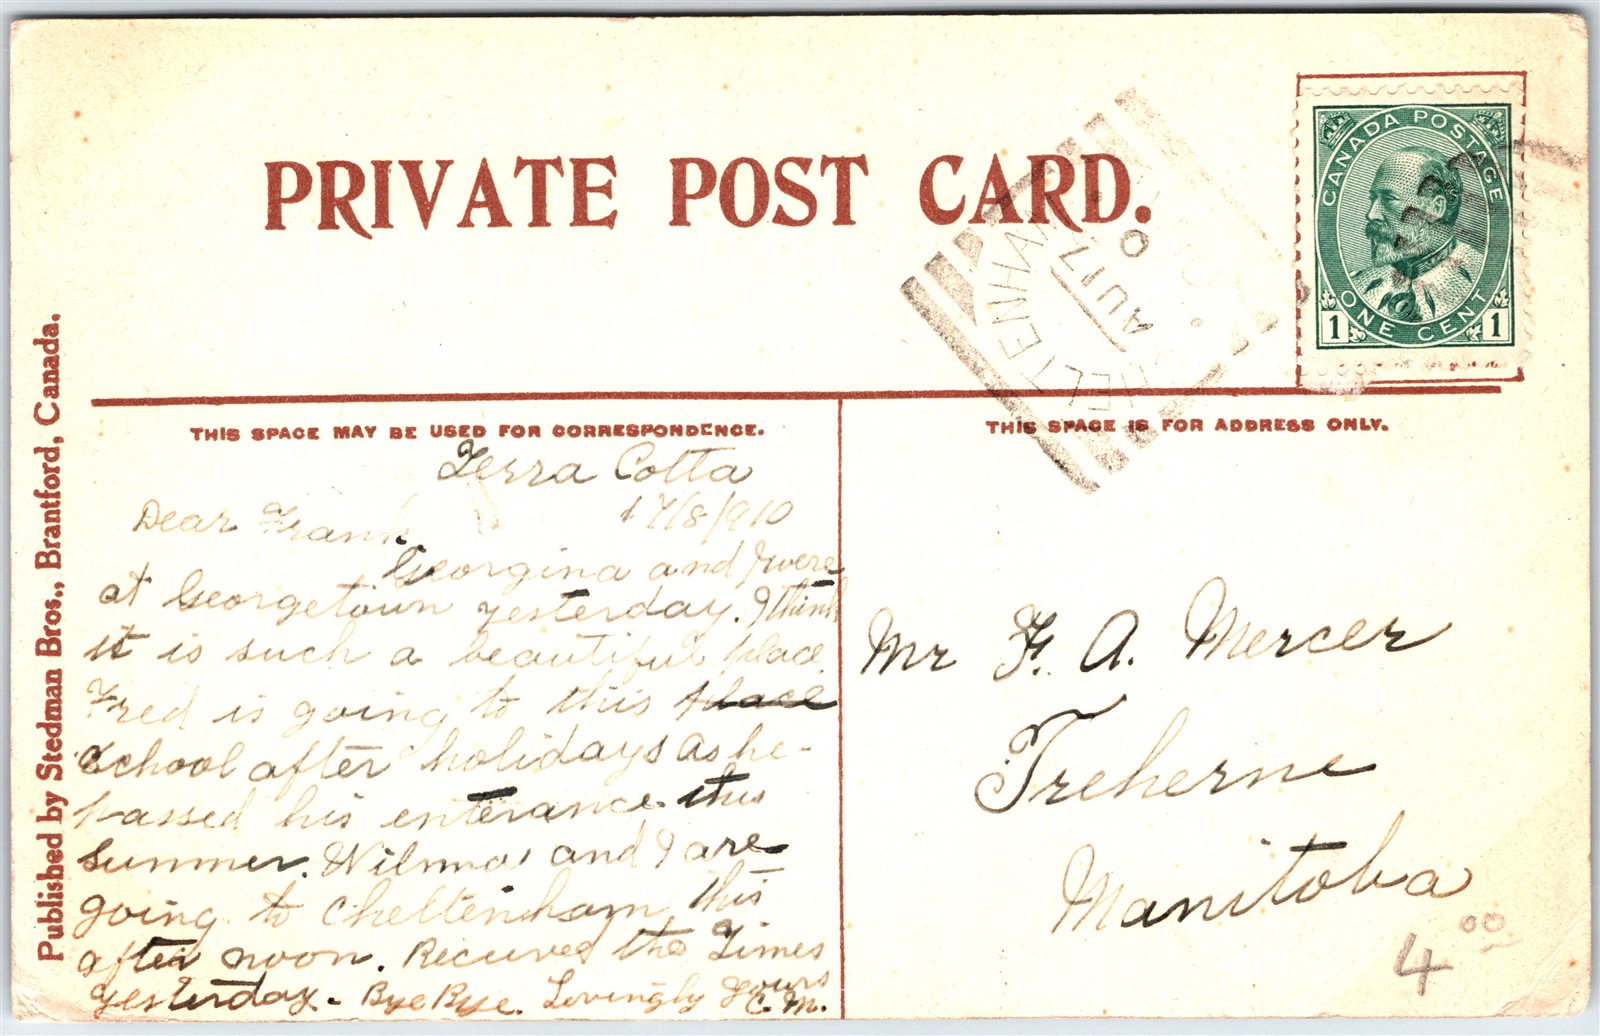 PRIVATE POST CARD.
CANADA POSTAGE
ONE CENT
1 1
CHELTENHAM
AU 17
10
ONT.
Published by Stedman Bros., Brantford, Canada.
THIS SPACE MAY BE USED FOR CORRESPONDENCE.
Terra Cotta
17/8/910
Dear Frank.
Georgina and I were
at Georgetown yesterday. I think
it is such a beautiful place
Fred is going to this place
School after holidays as he
passed his enterance this
summer. Wilma and I are
going to Cheltenham this
after noon. Recieved the Times
yesterday - Bye Bye. Lovingly yours
C. M.
THIS SPACE IS FOR ADDRESS ONLY.
Mr F. A. Mercer
Treherne
Manitoba
4 00